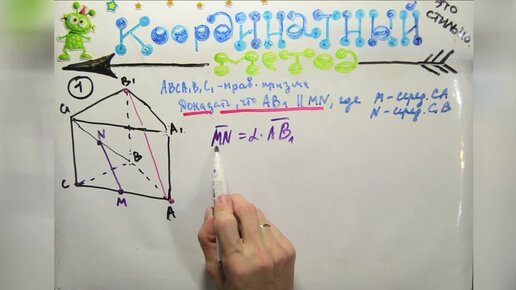 Координатный
метод
это
стильно
1
ABCA₁B₁C₁-прав. призма
Доказать, что AB₁ || MN, где
M-серед. CA
N-серед. C₁B
MN = α · AB₁
B₁
C₁
A₁
N
B
C
M
A